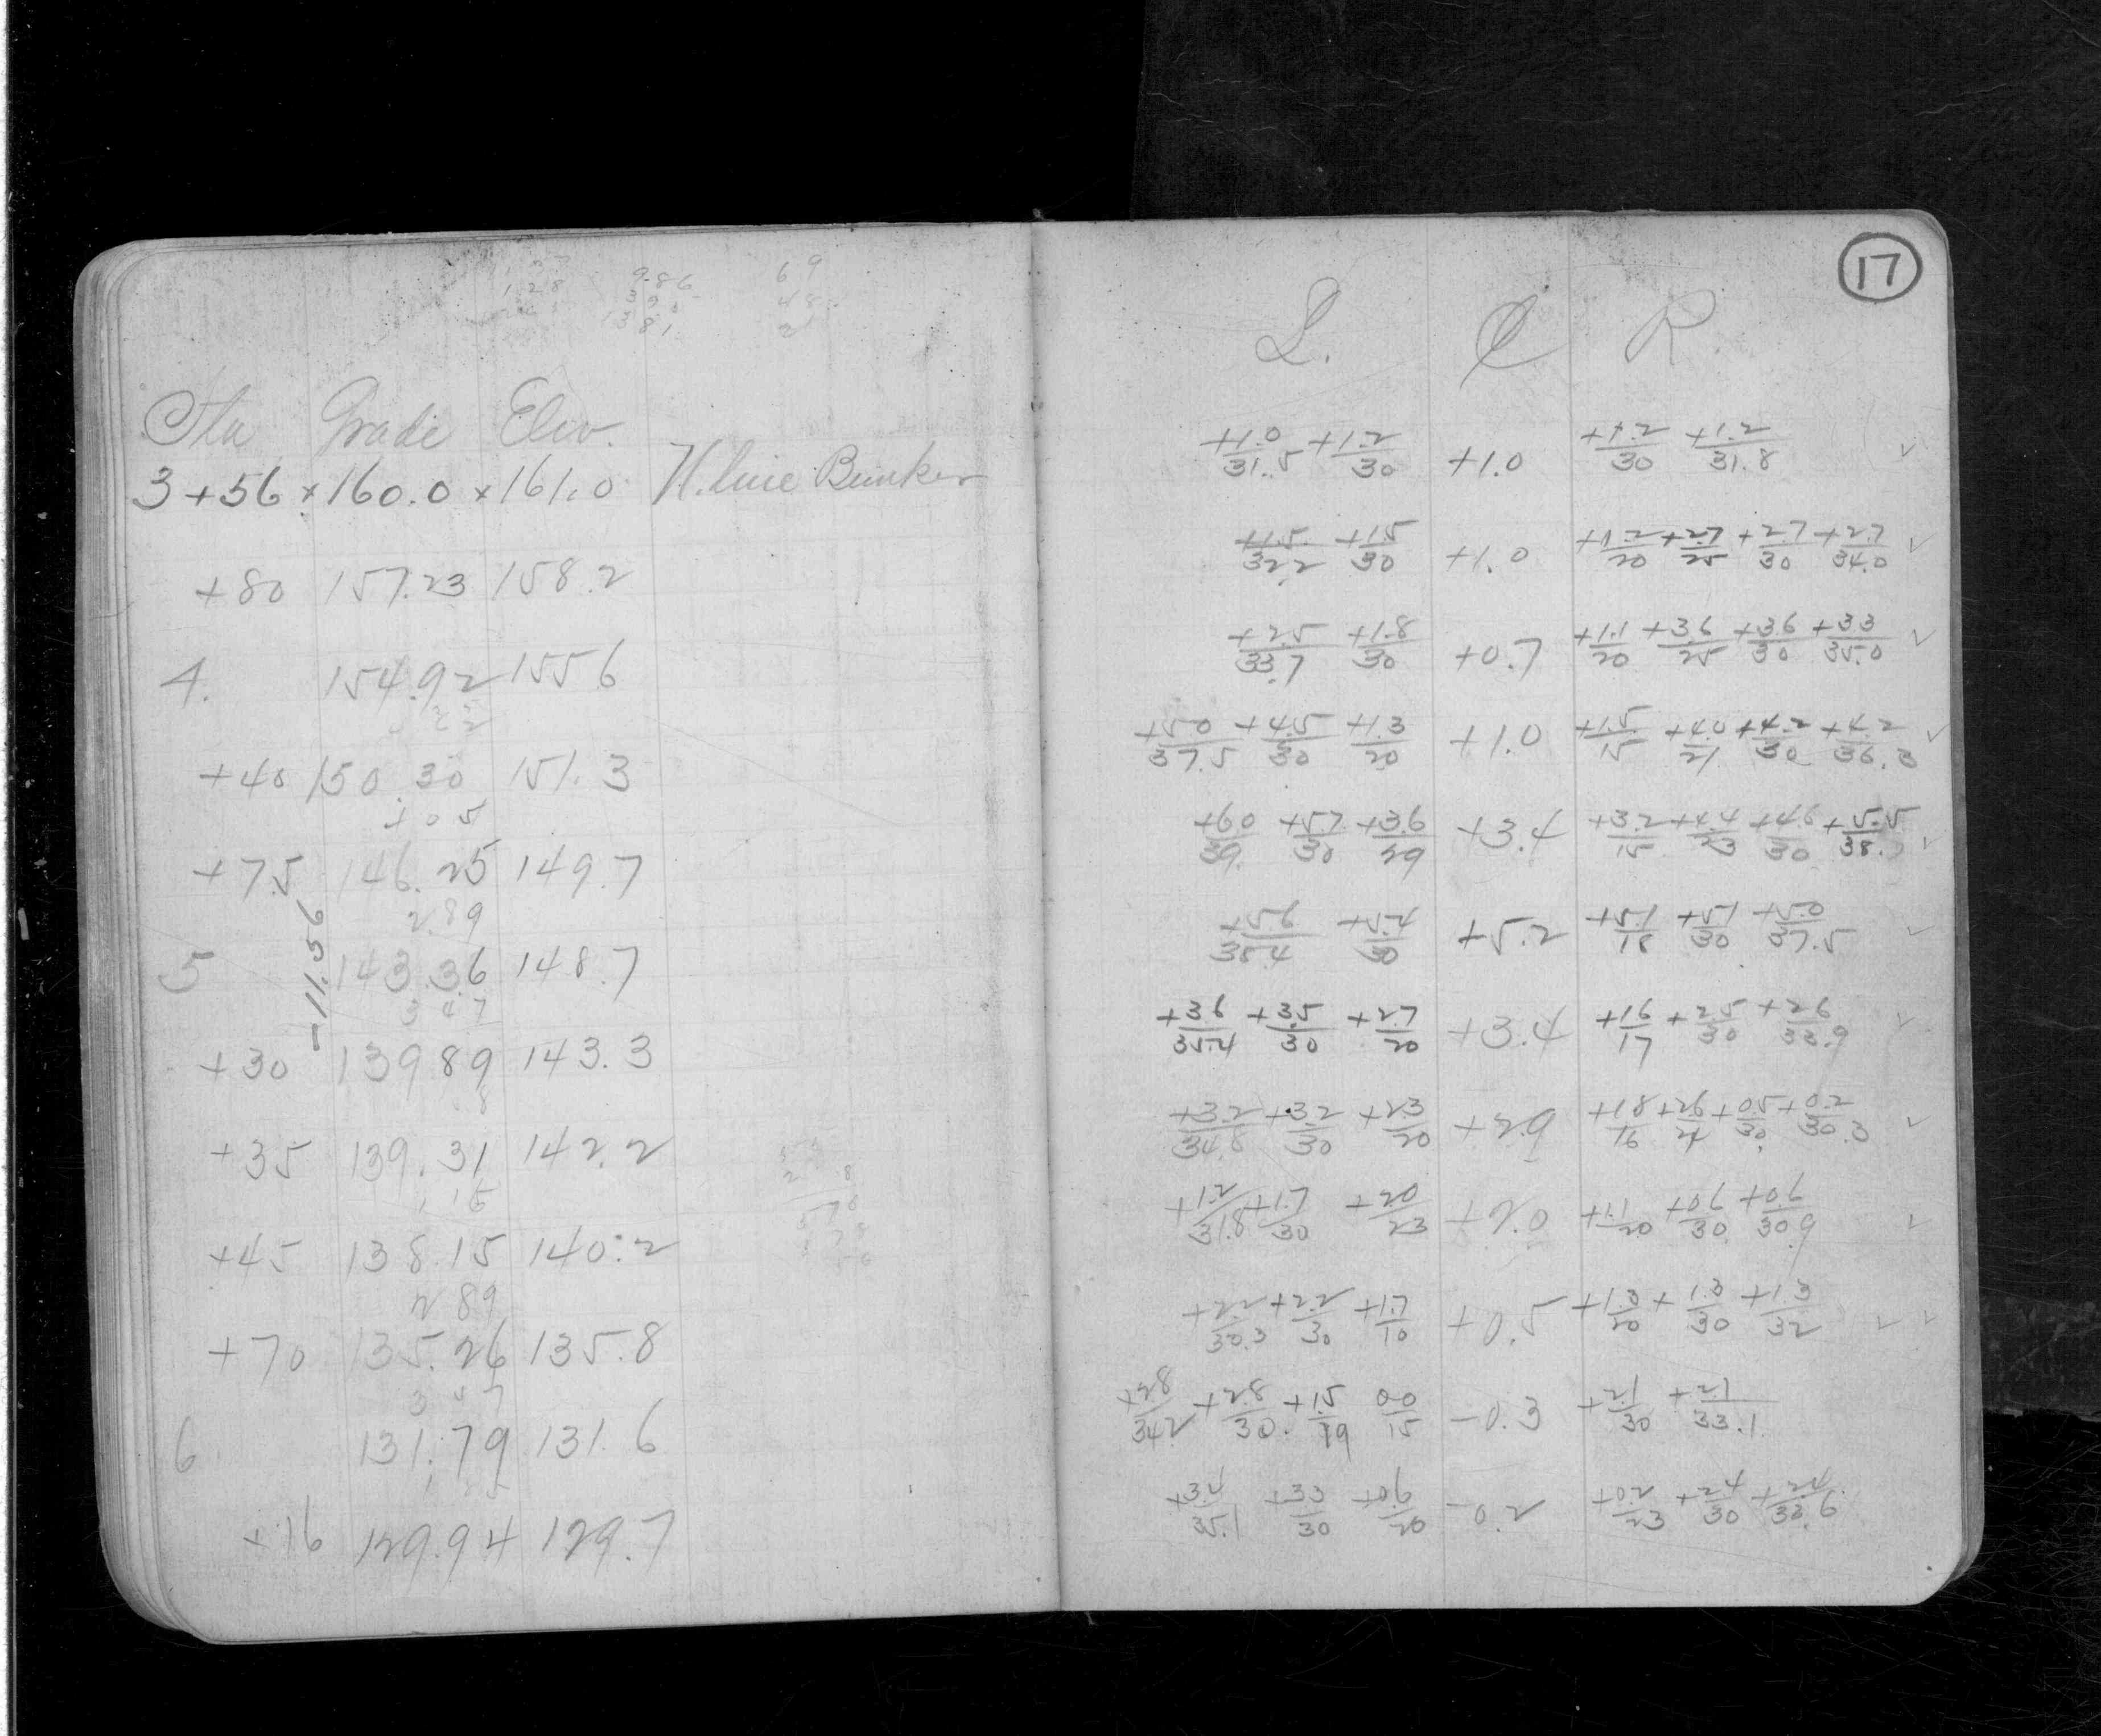 17
9.86
395
1381
69
48
21
Sta Grade Elev.
3+56 x 160.0 x 161.0 H. line Bunker
+80 157.23 158.2
4. 154.92 155 6
+40 150.30 151.3
4 05
+75 146.25 149.7
2 89
-11.56
5 143.36 148.7
3 47
+30 139 89 143.3
+35 139.31 142.2
1 16
+45 138.15 140.2
2 89
+70 135.26 135.8
3 47
6 131.79 131.6
+16 129.94 129.7
L. ℄ R.
+1.0/31.5 +1.2/30 +1.0 +1.2/30 +1.2/31.8 ✓
+1.5/32.2 +1.5/30 +1.0 +1.2/20 +2.7/25 +2.7/30 +2.7/34.0 ✓
+2.5/33.7 +1.8/30 +0.7 +1.1/20 +3.6/25 +3.6/30 +3.3/35.0 ✓
+5.0/37.5 +4.5/30 +1.3/20 +1.0 +1.5/15 +4.0/21 +4.2/30 +4.2/36.3 ✓
+6.0/39. +5.7/30 +3.6/29 +3.4 +3.2/15 +4.4/23 +4.6/30 +5.5/38. ✓
+5.6/38.4 +5.4/30 +5.2 +5.1/18 +5.1/30 +5.0/37.5 ✓
+3.6/35.4 +3.5/30 +2.7/20 +3.4 +1.6/17 +2.5/30 +2.6/33.9 ✓
+3.2/34.8 +3.2/30 +2.3/20 +2.9 +1.8/16 +2.6/24 +0.5/30 +0.2/30.3 ✓
+1.2/31.8 +1.7/30 +2.0/23 +2.0 +1.1/20 +0.6/30 +0.6/30.9 ✓
+2.2/33.3 +2.2/30 +1.7/10 +0.5 +1.3/20 +1.3/30 +1.3/32 ✓ ✓
+2.8/34.2 +2.8/30 +1.5/19 0.0/15 -0.3 +2.1/30 +2.1/33.1
+3.4/35.1 +3.3/30 +0.6/20 -0.2 +0.2/23 +2.4/30 +2.4/33.6